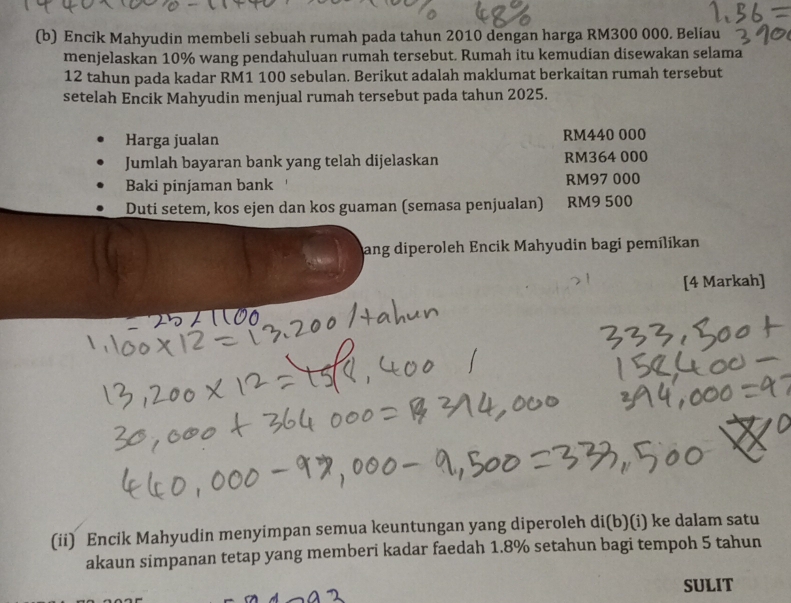 48%
1.56 =
390
(b) Encik Mahyudin membeli sebuah rumah pada tahun 2010 dengan harga RM300 000. Beliau
menjelaskan 10% wang pendahuluan rumah tersebut. Rumah itu kemudian disewakan selama
12 tahun pada kadar RM1 100 sebulan. Berikut adalah maklumat berkaitan rumah tersebut
setelah Encik Mahyudin menjual rumah tersebut pada tahun 2025.
• Harga jualan RM440 000
• Jumlah bayaran bank yang telah dijelaskan RM364 000
• Baki pinjaman bank RM97 000
• Duti setem, kos ejen dan kos guaman (semasa penjualan) RM9 500
ang diperoleh Encik Mahyudin bagi pemilikan
[4 Markah]
1.100 × 12 = 13.200 / tahun
13,200 × 12 = 158,400
30,000 + 364 000 = 394,000
440,000 - 97,000 - 9,500 = 333,500
333,500 +
158,400 -
394,000 = 97
(ii) Encik Mahyudin menyimpan semua keuntungan yang diperoleh di(b)(i) ke dalam satu
akaun simpanan tetap yang memberi kadar faedah 1.8% setahun bagi tempoh 5 tahun
SULIT